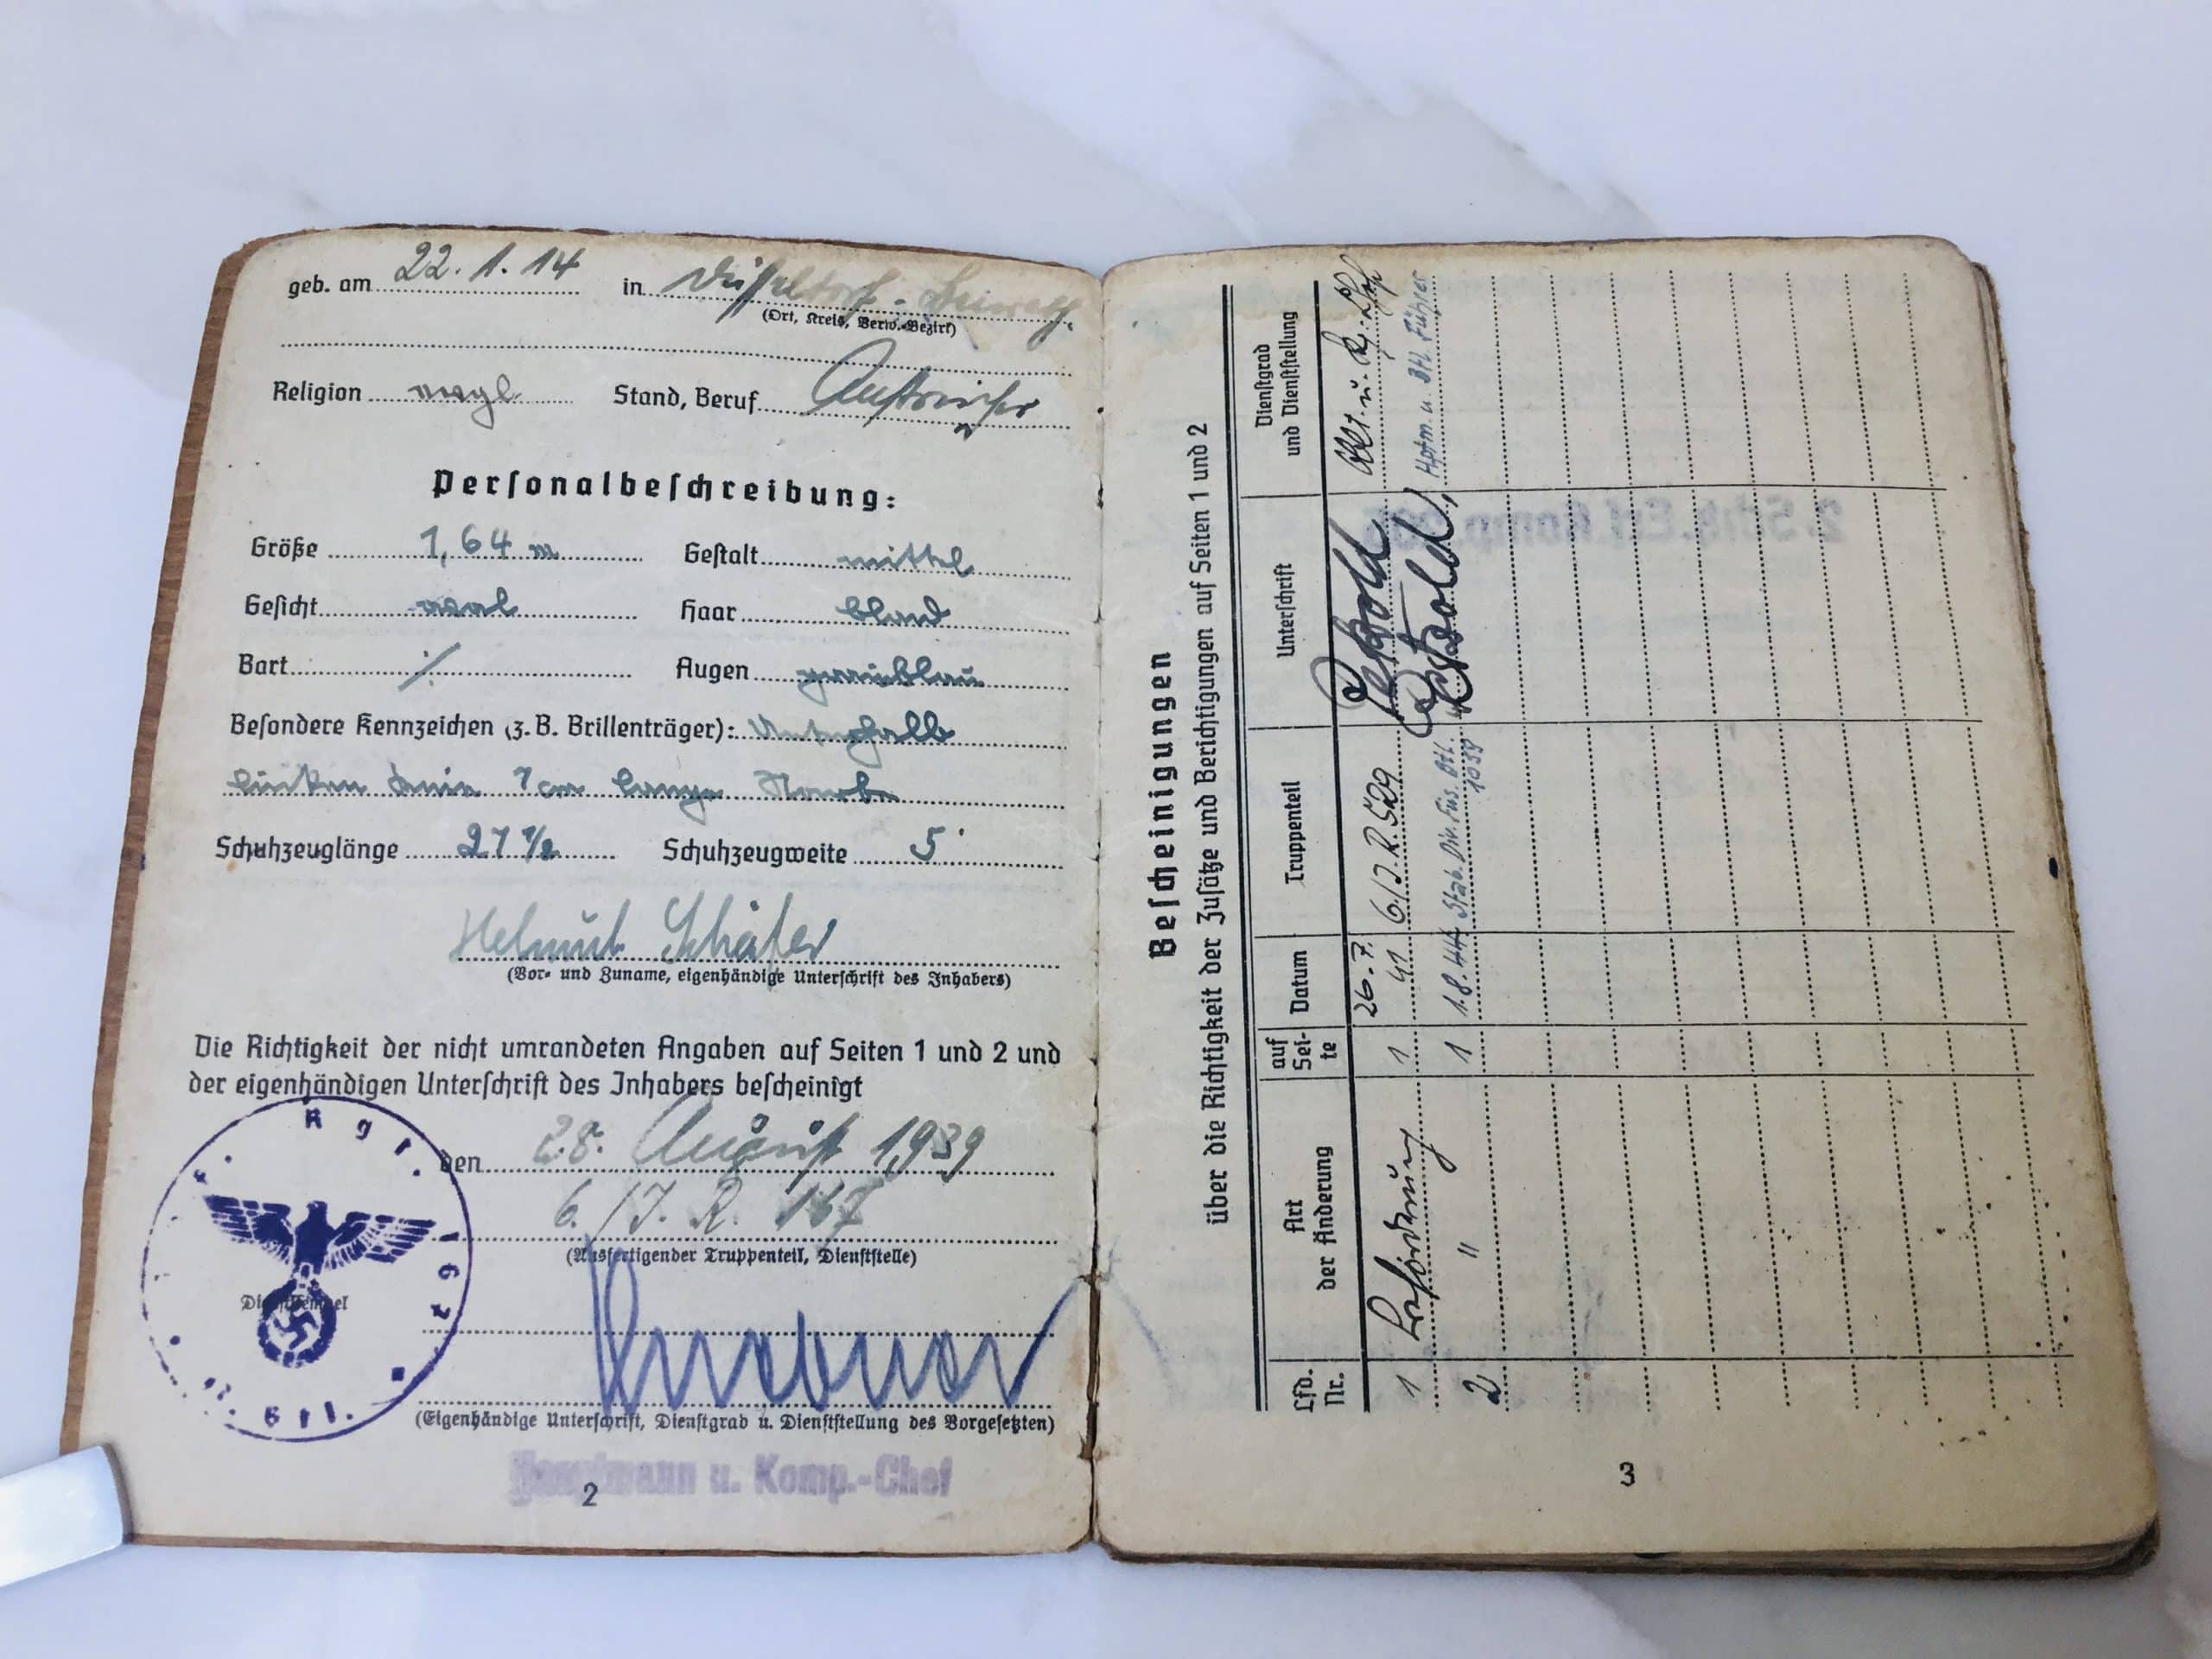 geb. am 22. 1. 14 in Düsseldorf -
(Ort, Kreis, Verw.-Bezirk)
Religion evgl. Stand, Beruf Anstreicher
Personalbeschreibung:
Größe 1,64 m Gestalt mittel
Gesicht oval Haar blond
Bart ·/. Augen graublau
Besondere Kennzeichen (z. B. Brillenträger): Unterhalb
linken Knie 7 cm lange Narbe
Schuhzeuglänge 27 1/2 Schuhzeugweite 5
Helmut Schäfer
(Vor- und Zuname, eigenhändige Unterschrift des Inhabers)
Die Richtigkeit der nicht umrandeten Angaben auf Seiten 1 und 2 und
der eigenhändigen Unterschrift des Inhabers bescheinigt
den 28. August 1939
6. / J. R. 167
(Ausfertigender Truppenteil, Dienststelle)
Dienststempel
Rgt. 167
(Eigenhändige Unterschrift, Dienstgrad u. Dienststellung des Vorgesetzten)
Hauptmann u. Komp.-Chef
2
Bescheinigungen
über die Richtigkeit der Zusätze und Berichtigungen auf Seiten 1 und 2
Lfd. Nr. Art der Änderung auf Sei-te Datum Truppenteil Unterschrift Dienstgrad und Dienststellung
1 Beförderung 1 26. 7. 41 6./J. R. 529 Petzold Oblt. u. Kp. Chef
2 " 1 1.8.44 Stab. Div. Füs. Btl. 1039 Petzold Hptm. u. Btl. Führer
3